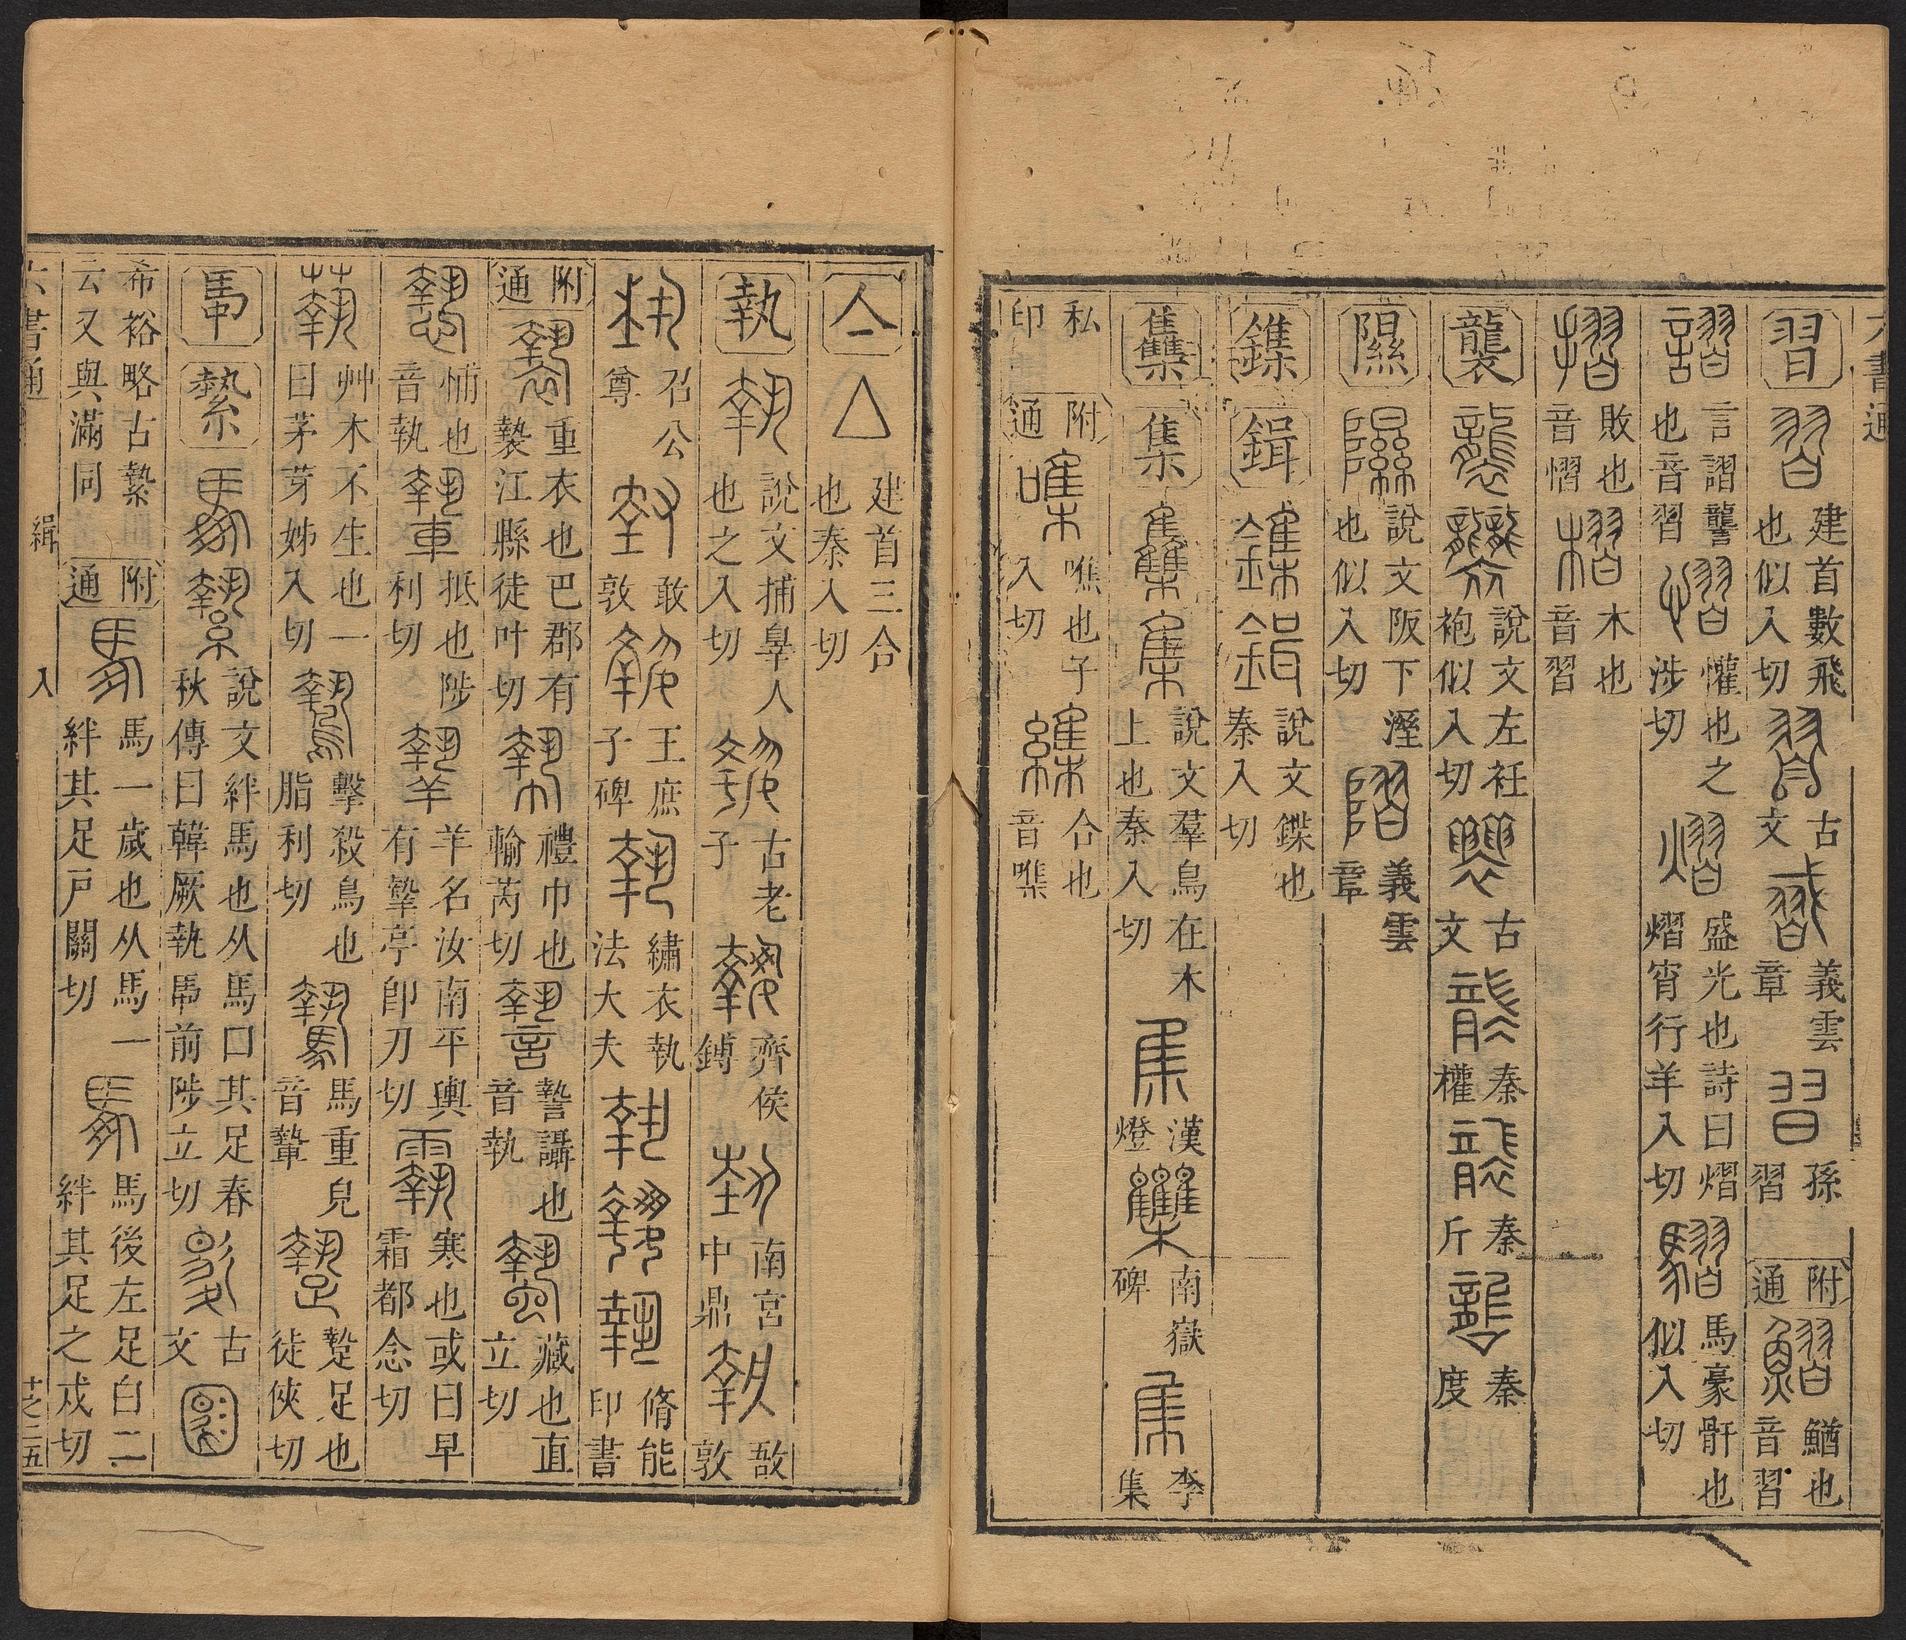 六書通
習 建首數飛也似入切 古文 義雲章 孫習 附通 鰼也音習
謵 言謵讋也音習 慴 懼也之涉切 熠 盛光也詩曰熠熠宵行羊入切 騽 馬豪骭也似入切
摺 敗也音慴 槢 木也音習
襲 說文左衽袍似入切 古文 秦權 秦斤 秦度
隰 說文阪下溼也似入切 義雲章
鏶 鍓 說文鍱也秦入切
雧 集 說文羣鳥在木上也秦入切 漢燈 南嶽碑 李集
私印 附通 噍也子入切 合也音噍
亼 建首三合也秦入切
執 說文捕辠人也之入切 古老子 齊侯鎛 南宮中鼎 敔敦
召公尊 敢敦 王庶子碑 繡衣執法大夫 脩能印書
附通 重衣也巴郡有褺江縣徒叶切 禮巾也輸芮切 讋讘也音執 藏也直立切
悑也音執 抵也陟利切 羊名汝南平輿有摯亭卽刃切 寒也或曰早霜都念切
艸木不生也一曰茅芽姊入切 擊殺鳥也脂利切 馬重皃音騺 蟄足也徒俠切
馽 縶 說文絆馬也从馬口其足春秋傳曰韓厥執馽前陟立切 古文
希裕略古縶云又與滿同 附通 馬一歲也从馬一絆其足戶關切 馬後左足白二絆其足之戍切
六書通 緝 入 十之二五